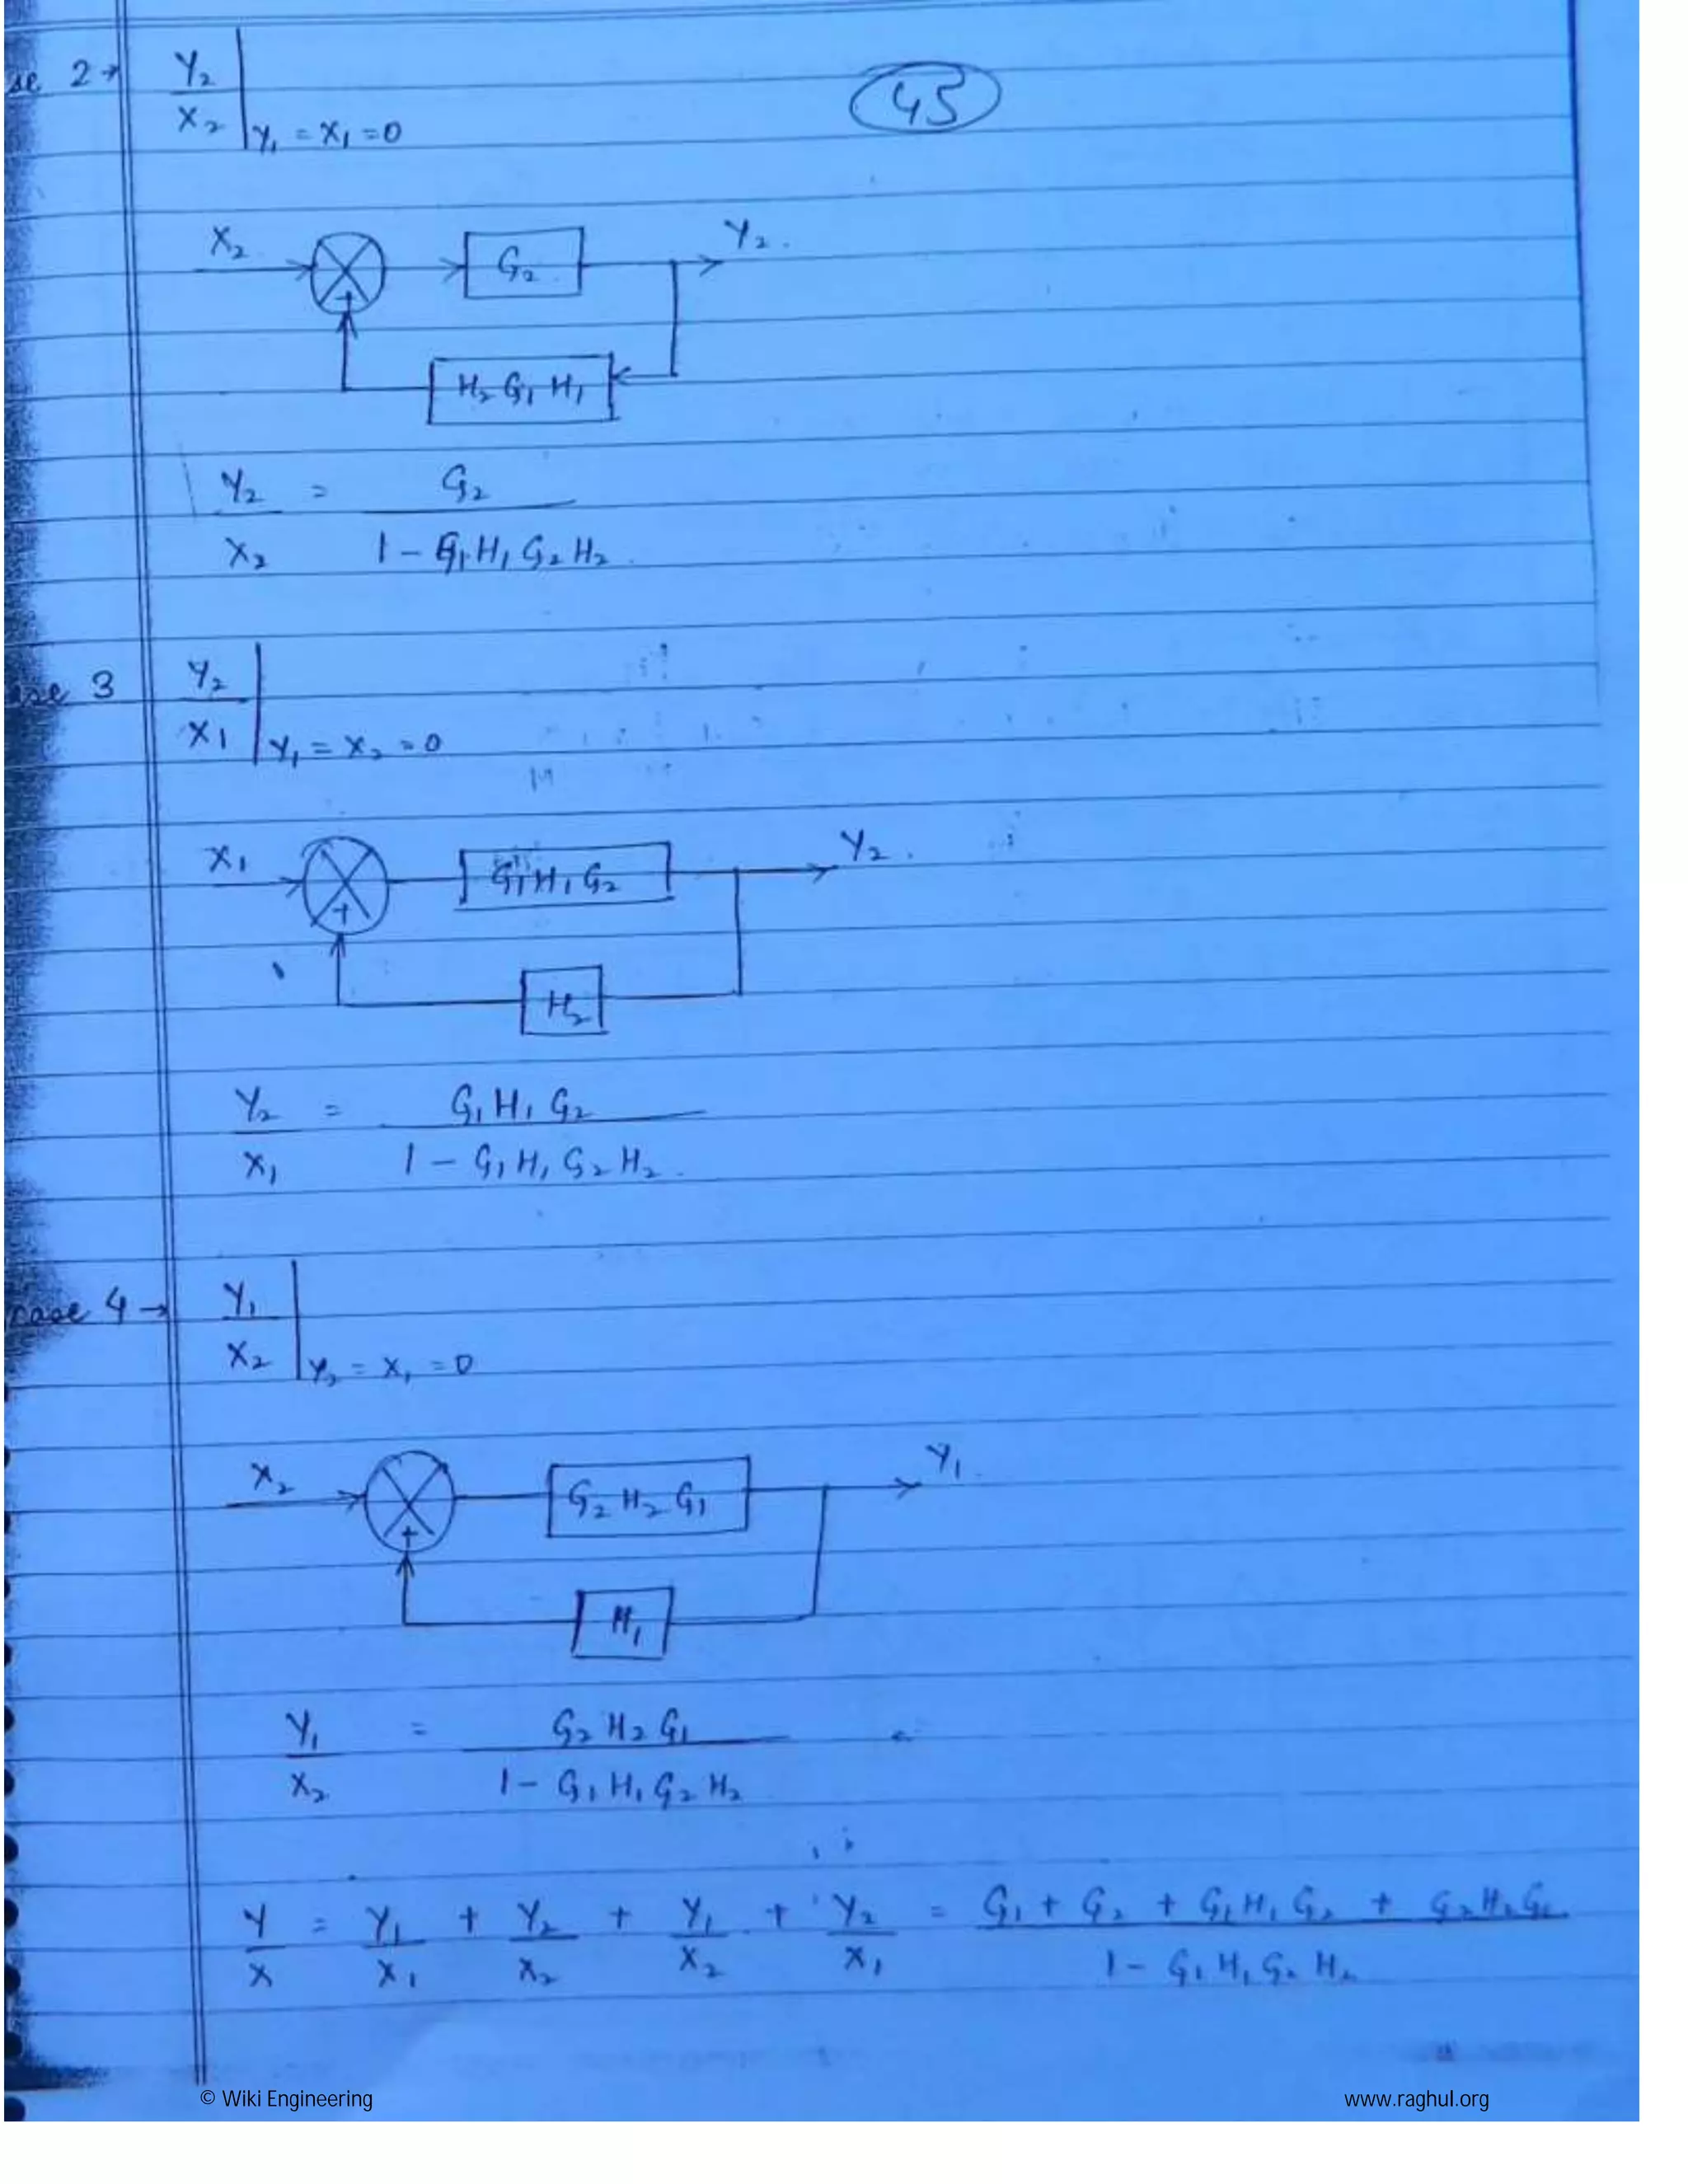 2 → Y₂
45
X₂ | Y₁ = X₁ = 0
X₂ G₂ Y₂.
+
H₂ G₁ H₁
Y₂ = G₂
X₂ 1 - G₁ H₁ G₂ H₂.
3 Y₂
X₁ | Y₁ = X₂ = 0
X₁ G₁ H₁ G₂ Y₂.
+
H₂
Y₂ = G₁ H₁ G₂
X₁ 1 - G₁ H₁ G₂ H₂.
case 4 → Y₁
X₂ | Y₂ = X₁ = 0
X₂ G₂ H₂ G₁ Y₁
+
H₁
Y₁ = G₂ H₂ G₁
X₂ 1 - G₁ H₁ G₂ H₂
Y = Y₁ + Y₂ + Y₁ + Y₂ = G₁ + G₂ + G₁ H₁ G₂ + G₂ H₂ G₁
X X₁ X₂ X₂ X₁ 1 - G₁ H₁ G₂ H₂
© Wiki Engineering www.raghul.org